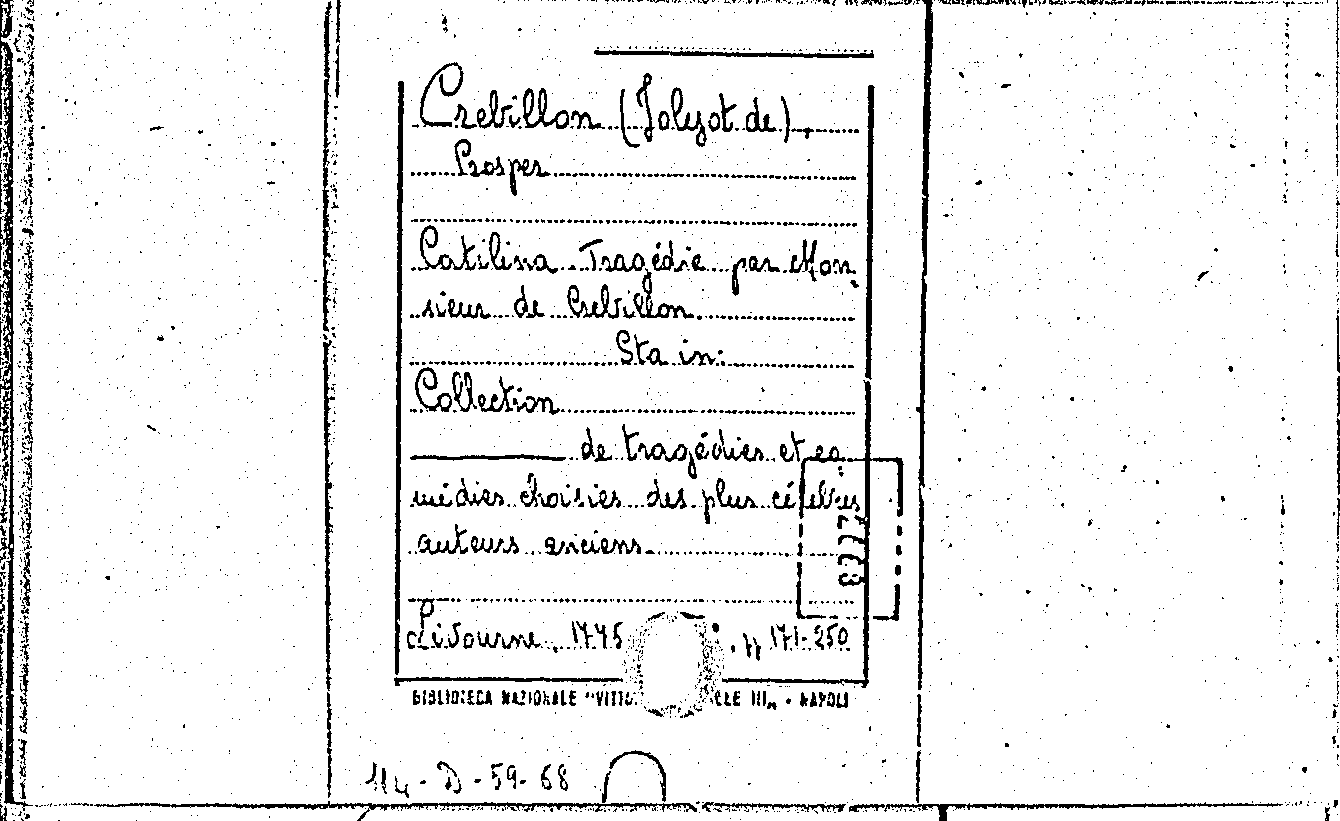 Crebillon (Jolyot de),
Prosper
Catilina. Tragédie par Mon-
sieur de Crebillon.
Sta in:
Collection
de tragédies et co-
médies choisies des plus célèbres
auteurs anciens.
Livourne. 1775 171-250
BIBLIOTECA NAZIONALE "VITTO ELE III„ - NAPOLI
114 - D - 59 - 68